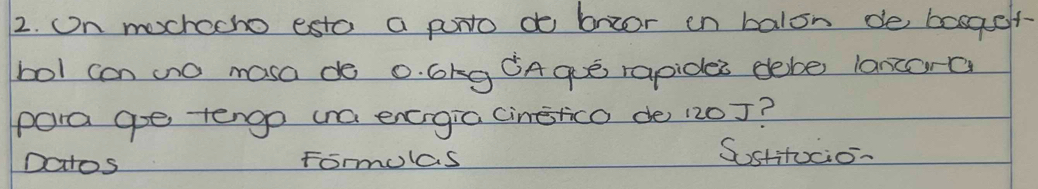 2. Un muchacho esta a punto de lanzar un balón de basquet-
bol con una masa de 0.6kg ¿A qué rapidez debe lanzarla
para que tenga una energía cinética de 120 J?
Datos Fórmulas Sustitución